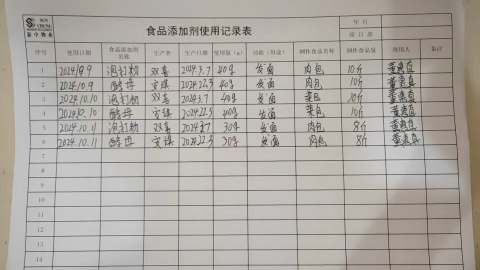 SUN CHUNG
食品添加剂使用记录表
年 月
项目部
序号 使用日期 食品添加剂名称 生产者 生产日期 使用量(g) 功能(用途) 制作食品名称 制作食品量 使用人 备注
1 2024.10.9 泡打粉 双喜 2024.3.7 40g 发面 肉包 10斤
2 2024.10.9 酵母 安琪 40g 发面 肉包 10斤
3 2024.10.10 泡打粉 双喜 2024.3.7 40g 发面 菜包 10斤
4 2024.10.10 酵母 安琪 40g 发面 菜包 10斤
5 2024.10.11 泡打粉 双喜 30g 发面 肉包 8斤
6 2024.10.11 酵母 安琪 30g 发面 肉包 8斤
7
8
9
10
11
12
13
14